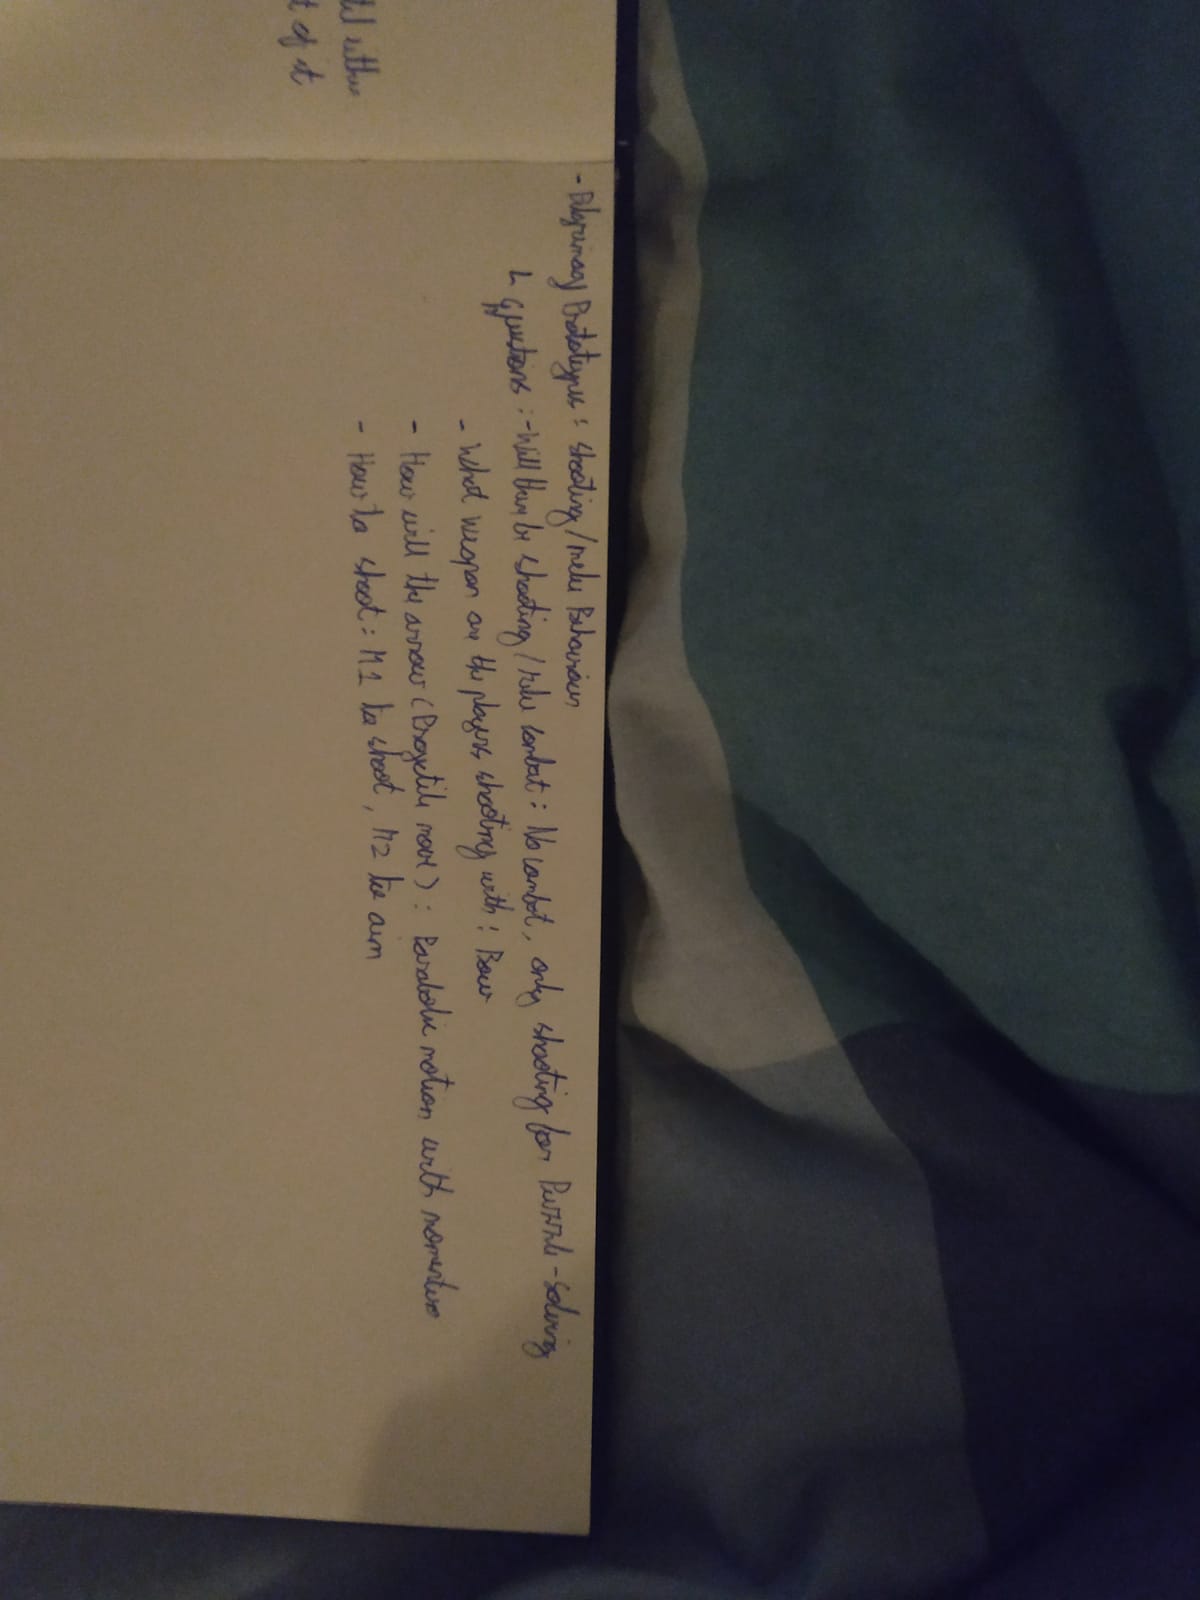 - Pilgrimag Prototypes : Shooting/melee Behaviours
↳ questions : - Will there be shooting / melee combat : No combat, only shooting for Puzzle-Solving
- What weapon are the players shooting with : Bow
- How will the arrow (Projectile move) : Parabolic motion with momentum
- How to shoot : M1 to shoot, M2 to aim
either
t of it